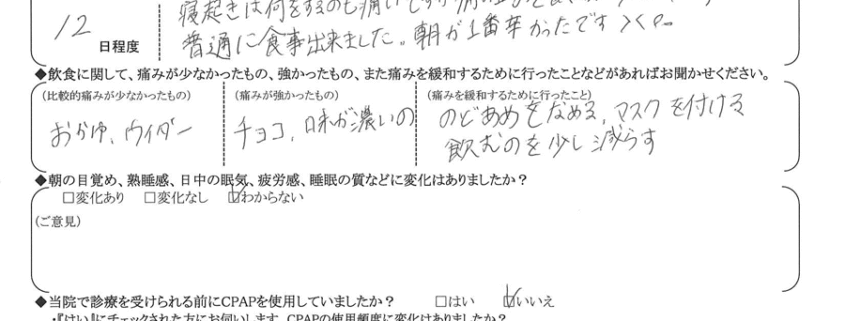 12
日程度
寝起きは何をするのも痛いですが
普通に食事出来ました。朝が1番辛かったです><。
◆飲食に関して、痛みが少なかったもの、強かったもの、また痛みを緩和するために行ったことなどがあればお聞かせください。
(比較的痛みが少なかったもの)
おかゆ、ウイダー
(痛みが強かったもの)
チョコ、味が濃いの
(痛みを緩和するために行ったこと)
のどあめをなめる、マスクを付ける
飲むのを少し減らす
◆朝の目覚め、熟睡感、日中の眠気、疲労感、睡眠の質などに変化はありましたか?
□変化あり □変化なし ☑わからない
(ご意見)
◆当院で診療を受けられる前にCPAPを使用していましたか? □はい ☑いいえ
・『はい』にチェックされた方にお伺いします。CPAPの使用頻度に変化はありましたか?